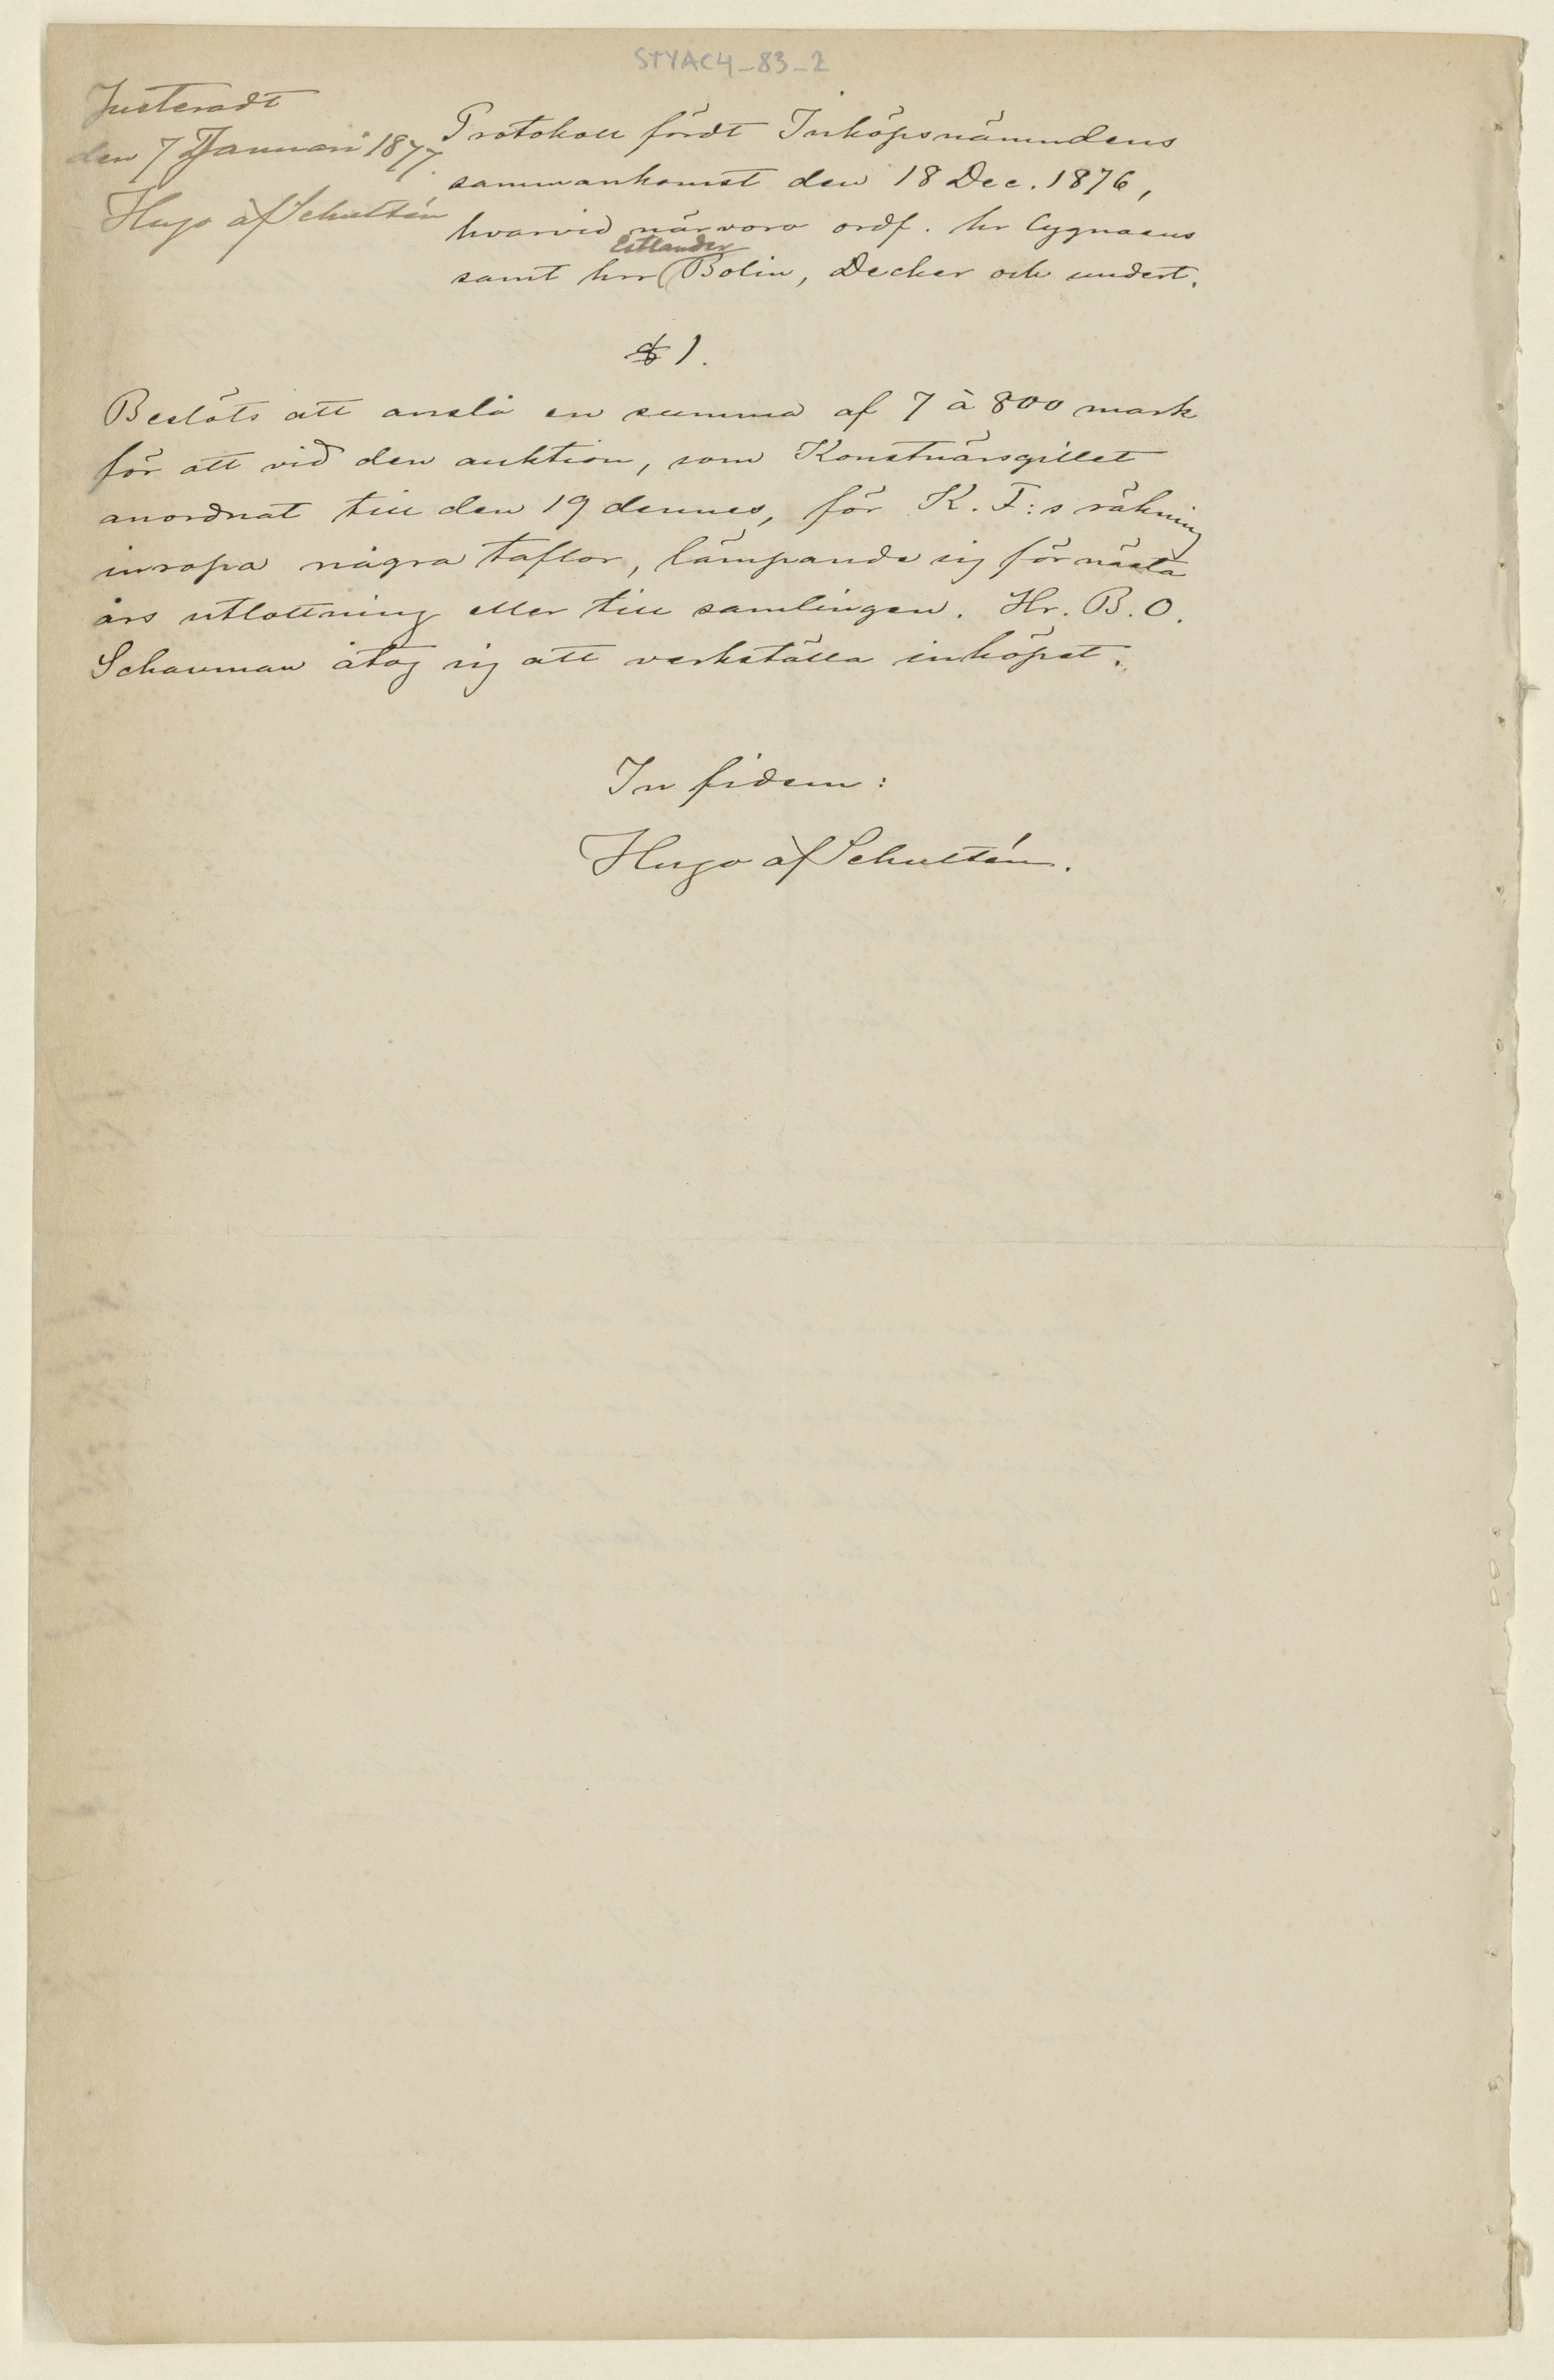 STYAC4_83_2
Justeradt
den 7 Januari 1877.
Hugo af Schultén
Protokoll fördt Inköpsnämndens
sammankomst den 18 Dec. 1876,
hvarvid närvoro ordf. hr Cygnaeus
Estlander
samt hrr Bolin, Decker och undert.
§ 1.
Beslöts att anslå en summa af 7 à 800 mark
för att vid den auktion, som Konstnärsgillet
anordnat till den 19 dennes, för K. F:s räkning
inropa några taflor, lämpande sig för nästa
års utlottning eller till samlingen. Hr. B. O.
Schauman åtog sig att verkställa inköpet.
In fidem:
Hugo af Schultén.